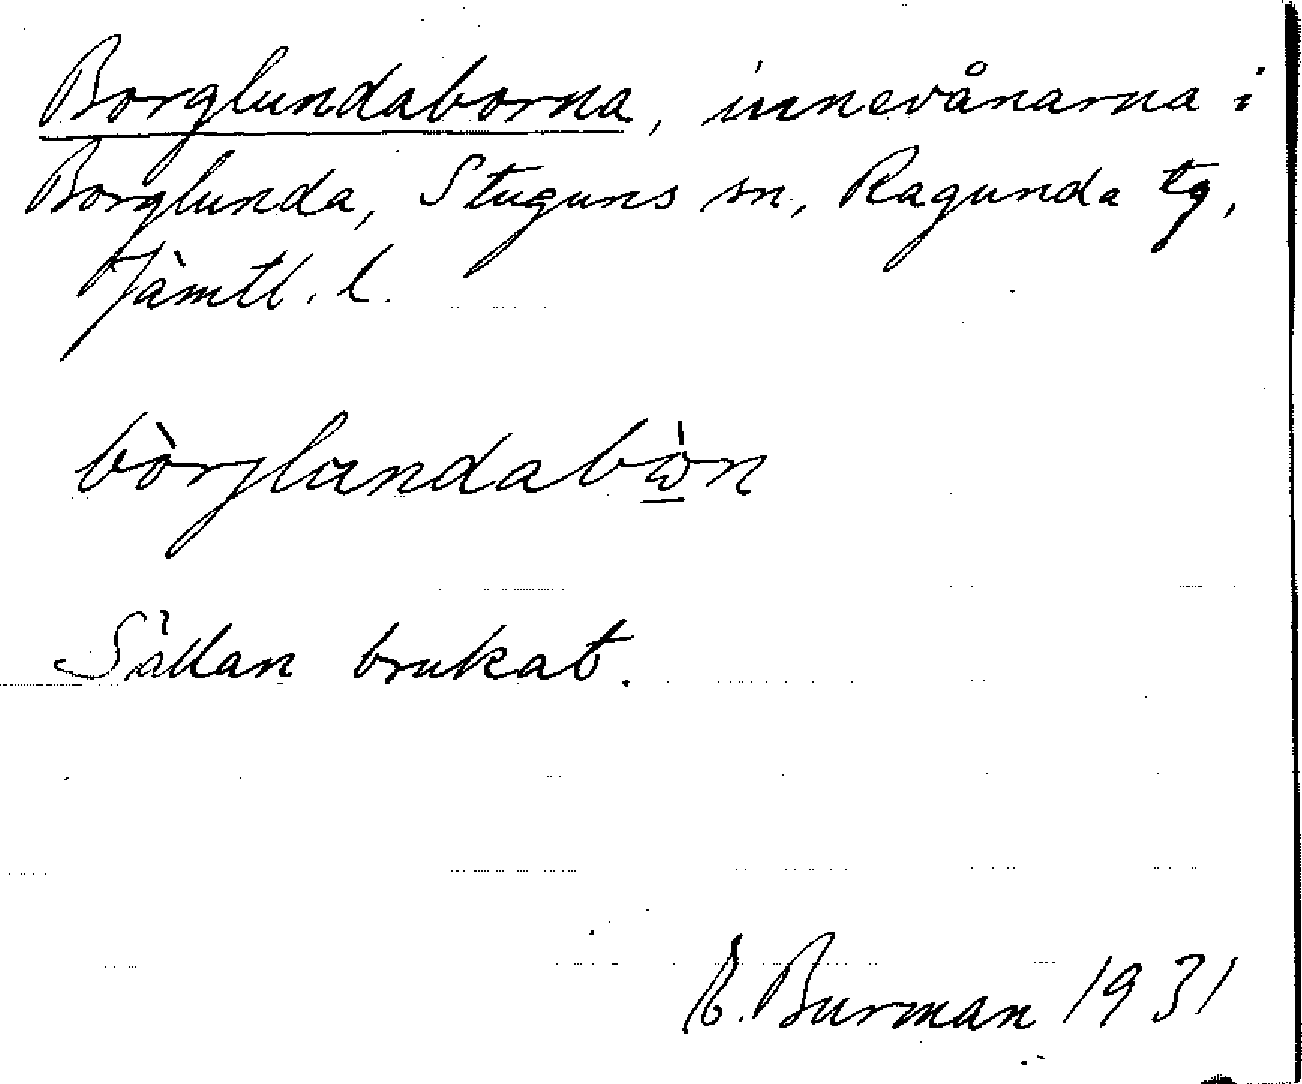 Borglundaborna, innevånarna i
Borglunda, Stuguns sn, Ragunda tg,
Jämtl. l.
bòrglundabὼ̲n
Sällan brukat.
E. Burman 1931